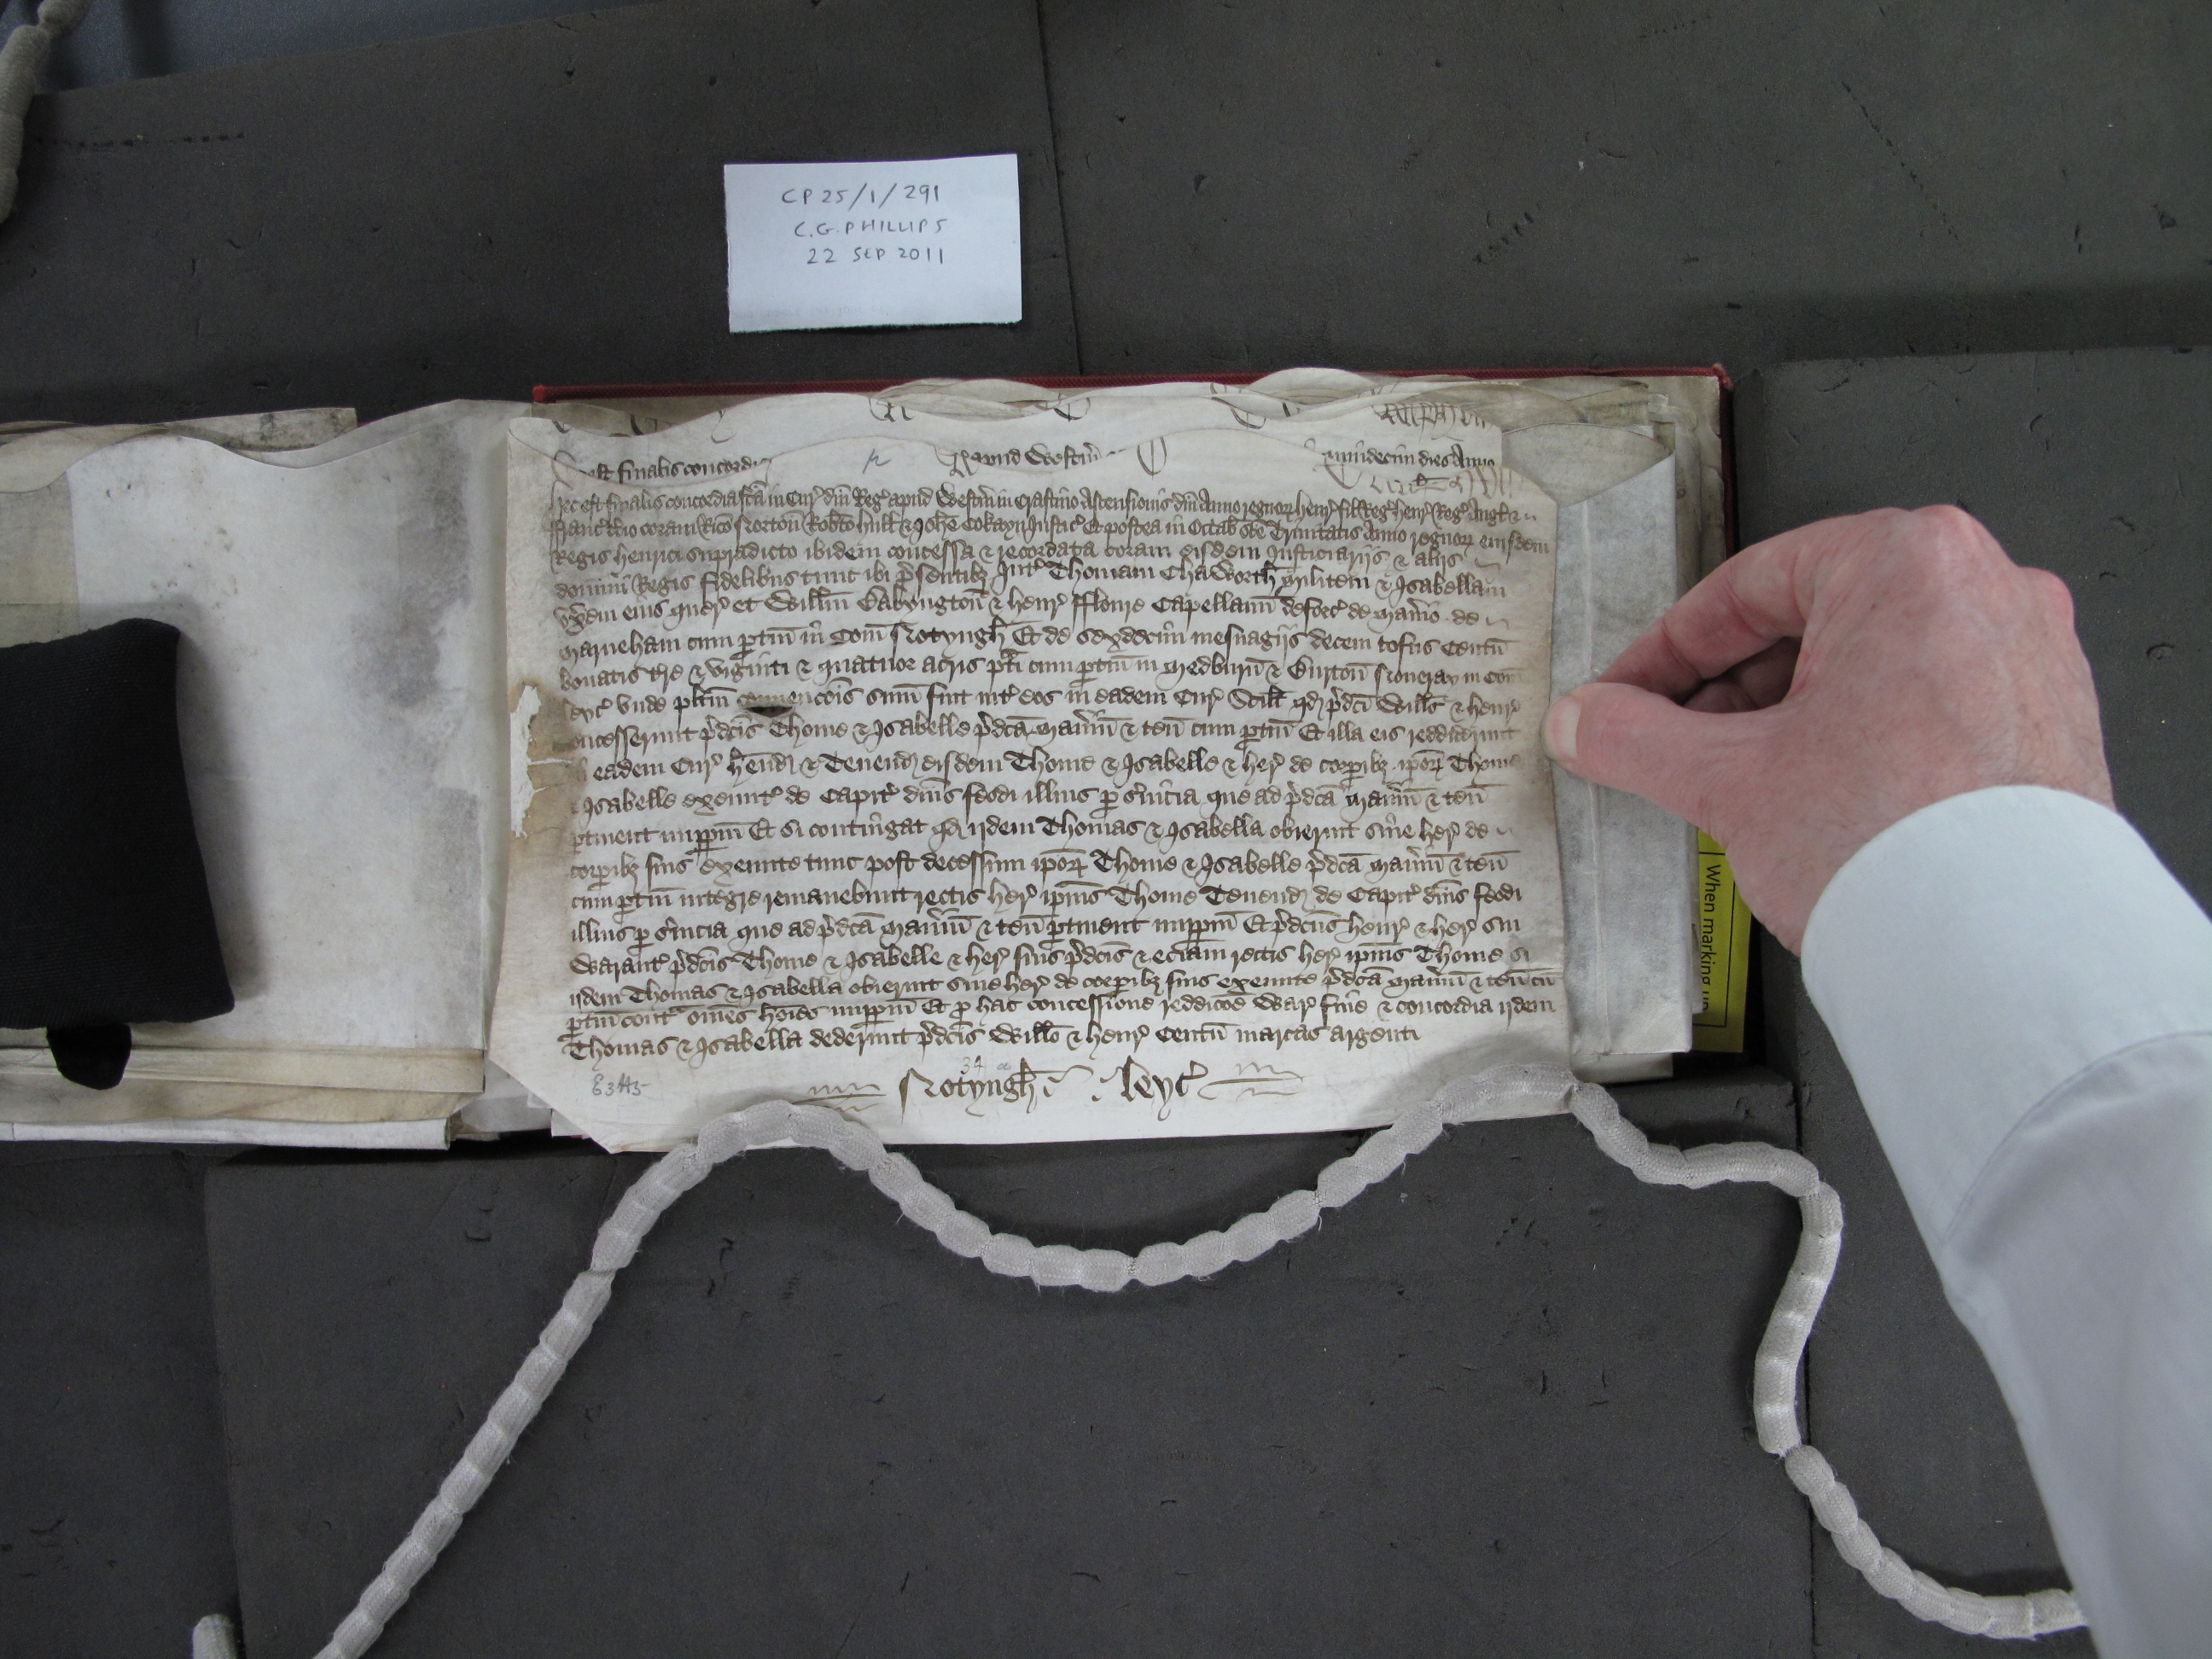 CP 25/1/291
C.G. PHILLIPS
22 SEP 2011
est finalis concord
apud Westm̄
quindecim dies Anno
Hec est finalis concordia fc̄a in Cur̉ dn̄i Reg̉ apud Westm̄ in Crastino Ascensionis dn̄i Anno regnoꝝ Henr̉ fil Reg̉ Henr̉ Reg̉ Angl̉ &
Franc̉ coram Ric̄o Norton̄ Rob̄to Hull̉ & Joh̄e Cokayn Justic̉ Et postea in Octab̄ sc̄e Trinitatis Anno regnoꝝ eiusdem
Regis Henrici supradicto ibidem concessa & recordata coram eisdem Justiciarijs & alijs
domini Regis fidelibus tunc ibi p̄sentibꝫ Int̉ Thomam Chaworth̄ Militem & Isabellam
vx̄em eius quer̉ et Will̄m Babyngton̄ & Henr̉ Capellanū deforc̉ de Man̉io de
Marneham cum ptin̄ in Com̄ Notyngh̄ Et de sexdecim mesuagijs decem toftis Centū
bouatis tr̄e & viginti & quatuor acris pti cum ptin̄ in Medburn̄ & Burton̄ Noueray in Com̄
leyc̉ vnde plitm̄ sum̄ fuit int̉ eos in eadem Cur̉ Scilt̉ qd p̄dc̄i Willūs & Henr̉
oncesserunt p̄dc̄is Thome & Isabelle p̄dc̄a Man̉iū & ten̄ cum ptin̄ Et illa eis reddiderunt
eadem Cur̉ Hend & Tenend eisdem Thome & Isabelle & her̉ de corporibꝫ ip̄oꝝ Thome
& Isabelle exeunt̉ de Capit̉ dn̄is feodi illius p s̄uicia que ad p̄dc̄a Man̉iū & ten̄
ptinent imppm̄ Et si contingat qd ijdem Thomas & Isabella obierint sine her̉ de
corporibꝫ suis exeunte tunc post decessum ip̄oꝝ Thome & Isabelle p̄dc̄a Man̉iū & ten̄
cum ptin̄ integre remanebunt rectis her̉ ip̄ius Thome Tenend de Capit̉ dn̄is feodi
illius p s̄uicia que ad p̄dc̄a Man̉iū & ten̄ ptinent imppm̄ Et p̄dc̄us Henr̉ & her̉ sui
Warant̉ p̄dc̄is Thome & Isabelle & her̉ suis p̄dc̄is & eciam rectis her̉ ip̄ius Thome si
ijdem Thomas & Isabella obierint sine her̉ de corporibꝫ suis exeunte p̄dc̄a Man̉iū & ten̄ cū
ptin̄ cont̉ om̄es hōies imppm̄ Et p hac concessione reddic̄oe War̉ fine & concordia ijdem
Thomas & Isabella dederunt p̄dc̄is Will̄o & Henr̉ Centū marcas argenti
34 a
Notyngh̄ Leyc̉
When marking up